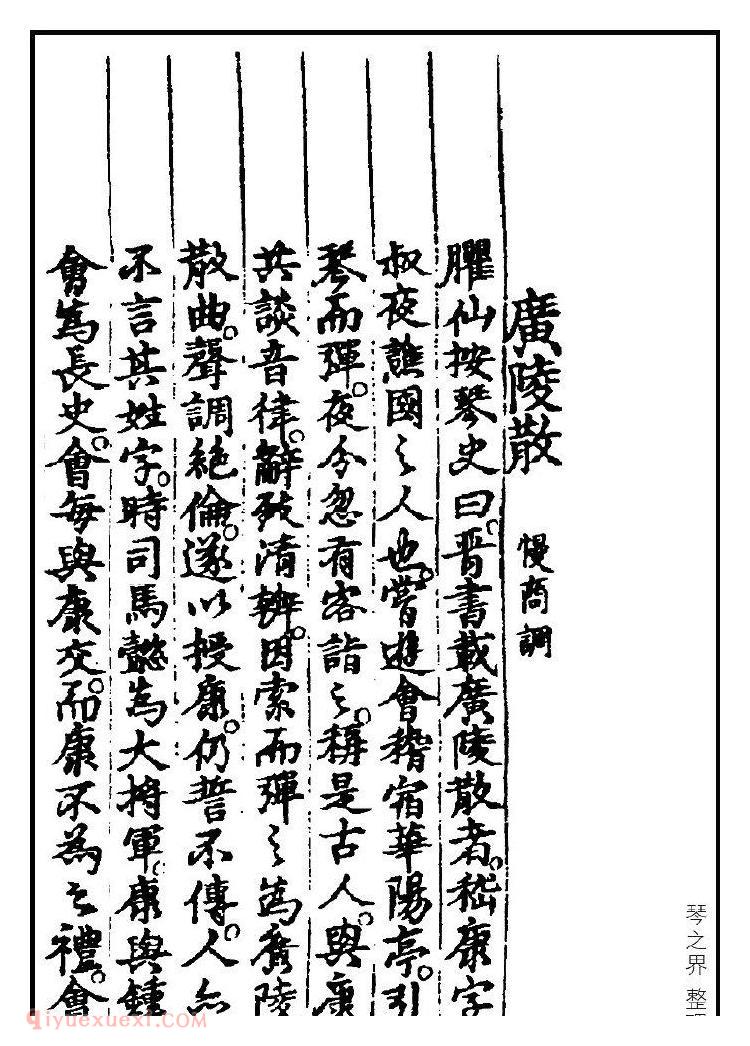 廣陵散 慢商調
臞仙按琴史曰。晋書載廣陵散者。嵇康字
叔夜譙國之人也。嘗遊會稽宿華陽亭。引
琴而彈。夜分忽有客詣之。稱是古人。與康
共談音律。辭致清辨。因索而彈之為廣陵
散曲。聲調絶倫。遂以授康。仍誓不傳。人亦
不言其姓字。時司馬懿為大将軍。康與鍾
會為長史。會每與康交。而康不為之禮。會
琴之界 整理
qiyuexuexi.com